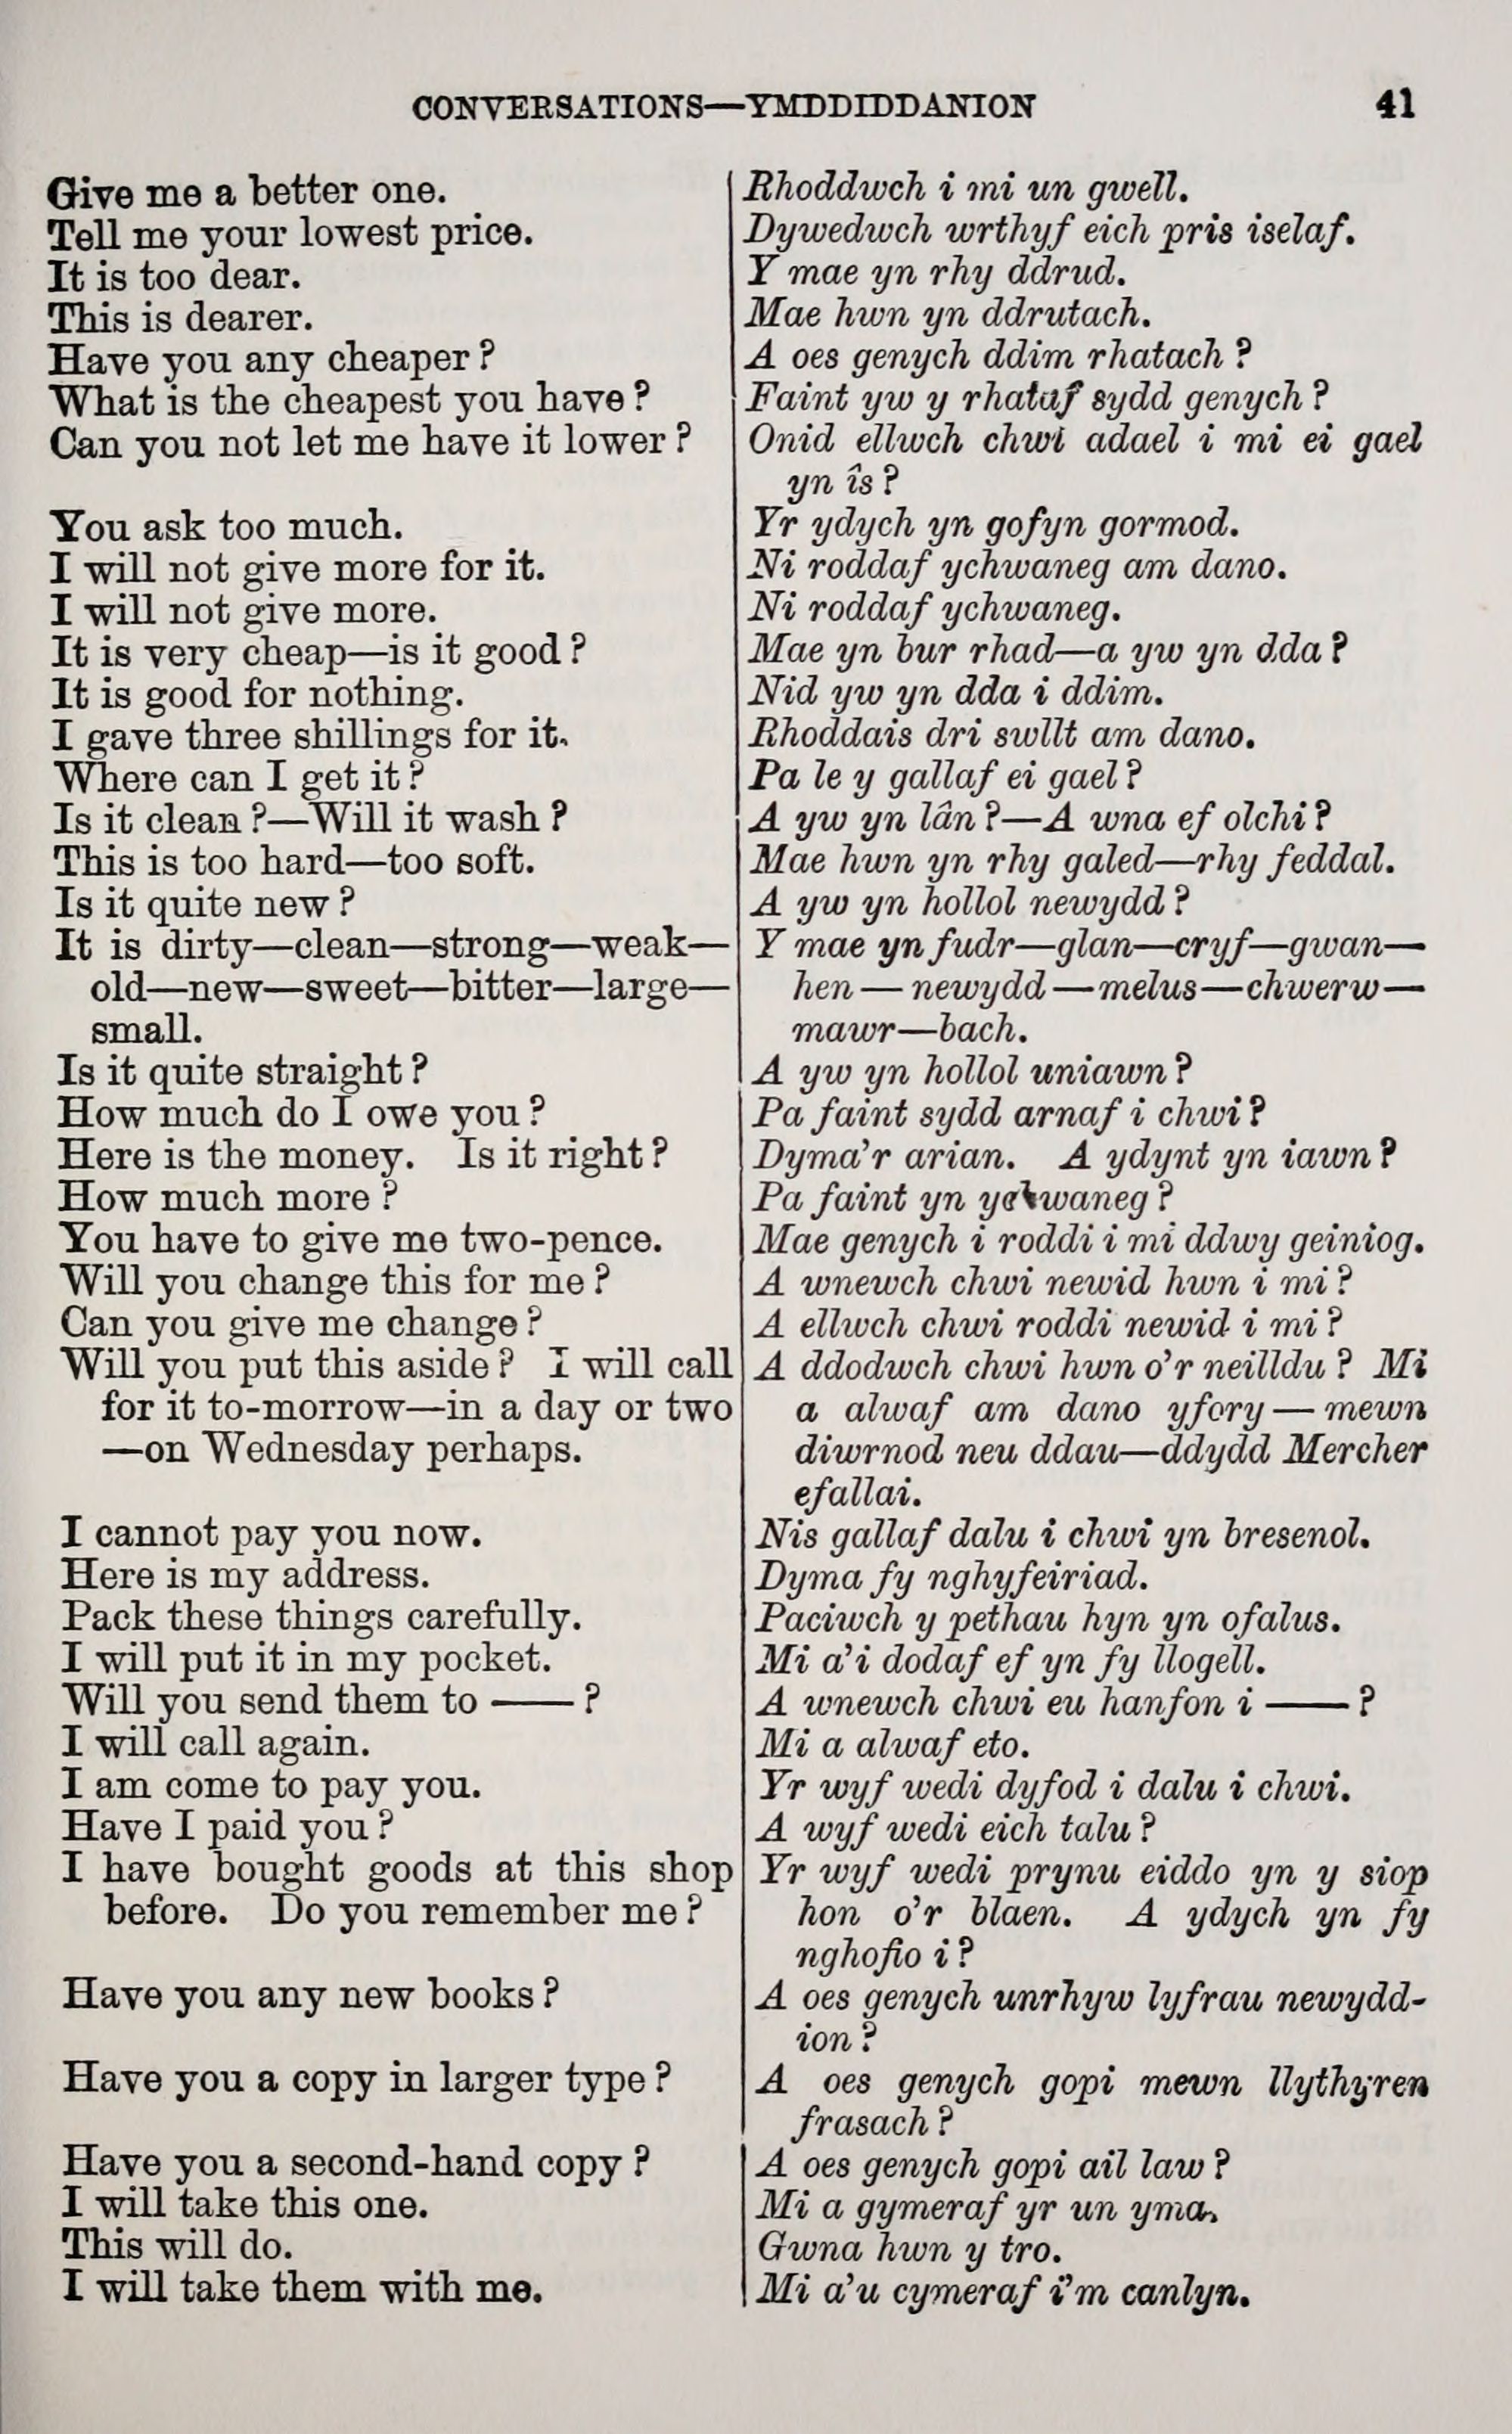 CONVERSATIONS—YMDDIDDANION 41
Give me a better one.
Tell me your lowest price.
It is too dear.
This is dearer.
Have you any cheaper?
What is the cheapest you have?
Can you not let me have it lower?
You ask too much.
I will not give more for it.
I will not give more.
It is very cheap—is it good?
It is good for nothing.
I gave three shillings for it.
Where can I get it?
Is it clean?—Will it wash?
This is too hard—too soft.
Is it quite new?
It is dirty—clean—strong—weak—
old—new—sweet—bitter—large—
small.
Is it quite straight?
How much do I owe you?
Here is the money. Is it right?
How much more?
You have to give me two-pence.
Will you change this for me?
Can you give me change?
Will you put this aside? I will call
for it to-morrow—in a day or two
—on Wednesday perhaps.
I cannot pay you now.
Here is my address.
Pack these things carefully.
I will put it in my pocket.
Will you send them to ——?
I will call again.
I am come to pay you.
Have I paid you?
I have bought goods at this shop
before. Do you remember me?
Have you any new books?
Have you a copy in larger type?
Have you a second-hand copy?
I will take this one.
This will do.
I will take them with me.
Rhoddwch i mi un gwell.
Dywedwch wrthyf eich pris iselaf.
Y mae yn rhy ddrud.
Mae hwn yn ddrutach.
A oes genych ddim rhatach?
Faint yw y rhataf sydd genych?
Onid ellwch chwi adael i mi ei gael
yn îs?
Yr ydych yn gofyn gormod.
Ni roddaf ychwaneg am dano.
Ni roddaf ychwaneg.
Mae yn bur rhad—a yw yn dda?
Nid yw yn dda i ddim.
Rhoddais dri swllt am dano.
Pa le y gallaf ei gael?
A yw yn lân?—A wna ef olchi?
Mae hwn yn rhy galed—rhy feddal.
A yw yn hollol newydd?
Y mae yn fudr—glan—cryf—gwan—
hen—newydd—melus—chwerw—
mawr—bach.
A yw yn hollol uniawn?
Pa faint sydd arnaf i chwi?
Dyma'r arian. A ydynt yn iawn?
Pa faint yn ychwaneg?
Mae genych i roddi i mi ddwy geiniog.
A wnewch chwi newid hwn i mi?
A ellwch chwi roddi newid i mi?
A ddodwch chwi hwn o'r neilldu? Mi
a alwaf am dano yfory—mewn
diwrnod neu ddau—ddydd Mercher
efallai.
Nis gallaf dalu i chwi yn bresenol.
Dyma fy nghyfeiriad.
Paciwch y pethau hyn yn ofalus.
Mi a'i dodaf ef yn fy llogell.
A wnewch chwi eu hanfon i ——?
Mi a alwaf eto.
Yr wyf wedi dyfod i dalu i chwi.
A wyf wedi eich talu?
Yr wyf wedi prynu eiddo yn y siop
hon o'r blaen. A ydych yn fy
nghofio i?
A oes genych unrhyw lyfrau newydd-
ion?
A oes genych gopi mewn llythyren
frasach?
A oes genych gopi ail law?
Mi a gymeraf yr un yma.
Gwna hwn y tro.
Mi a'u cymeraf i'm canlyn.